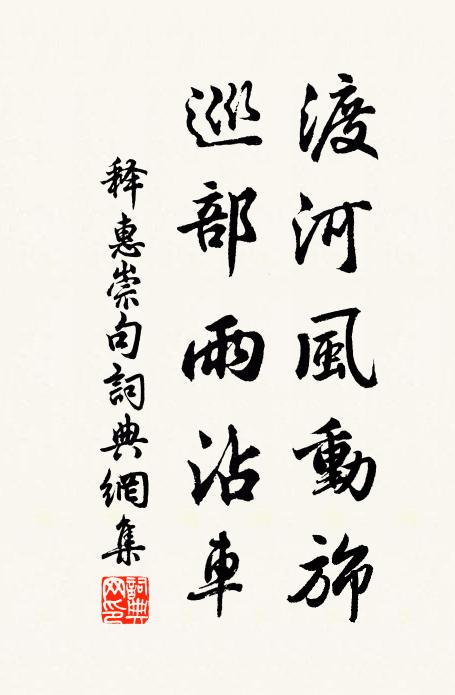 渡河風動旆
巡部雨沾車
释惠崇句詞典網集
詞典网印